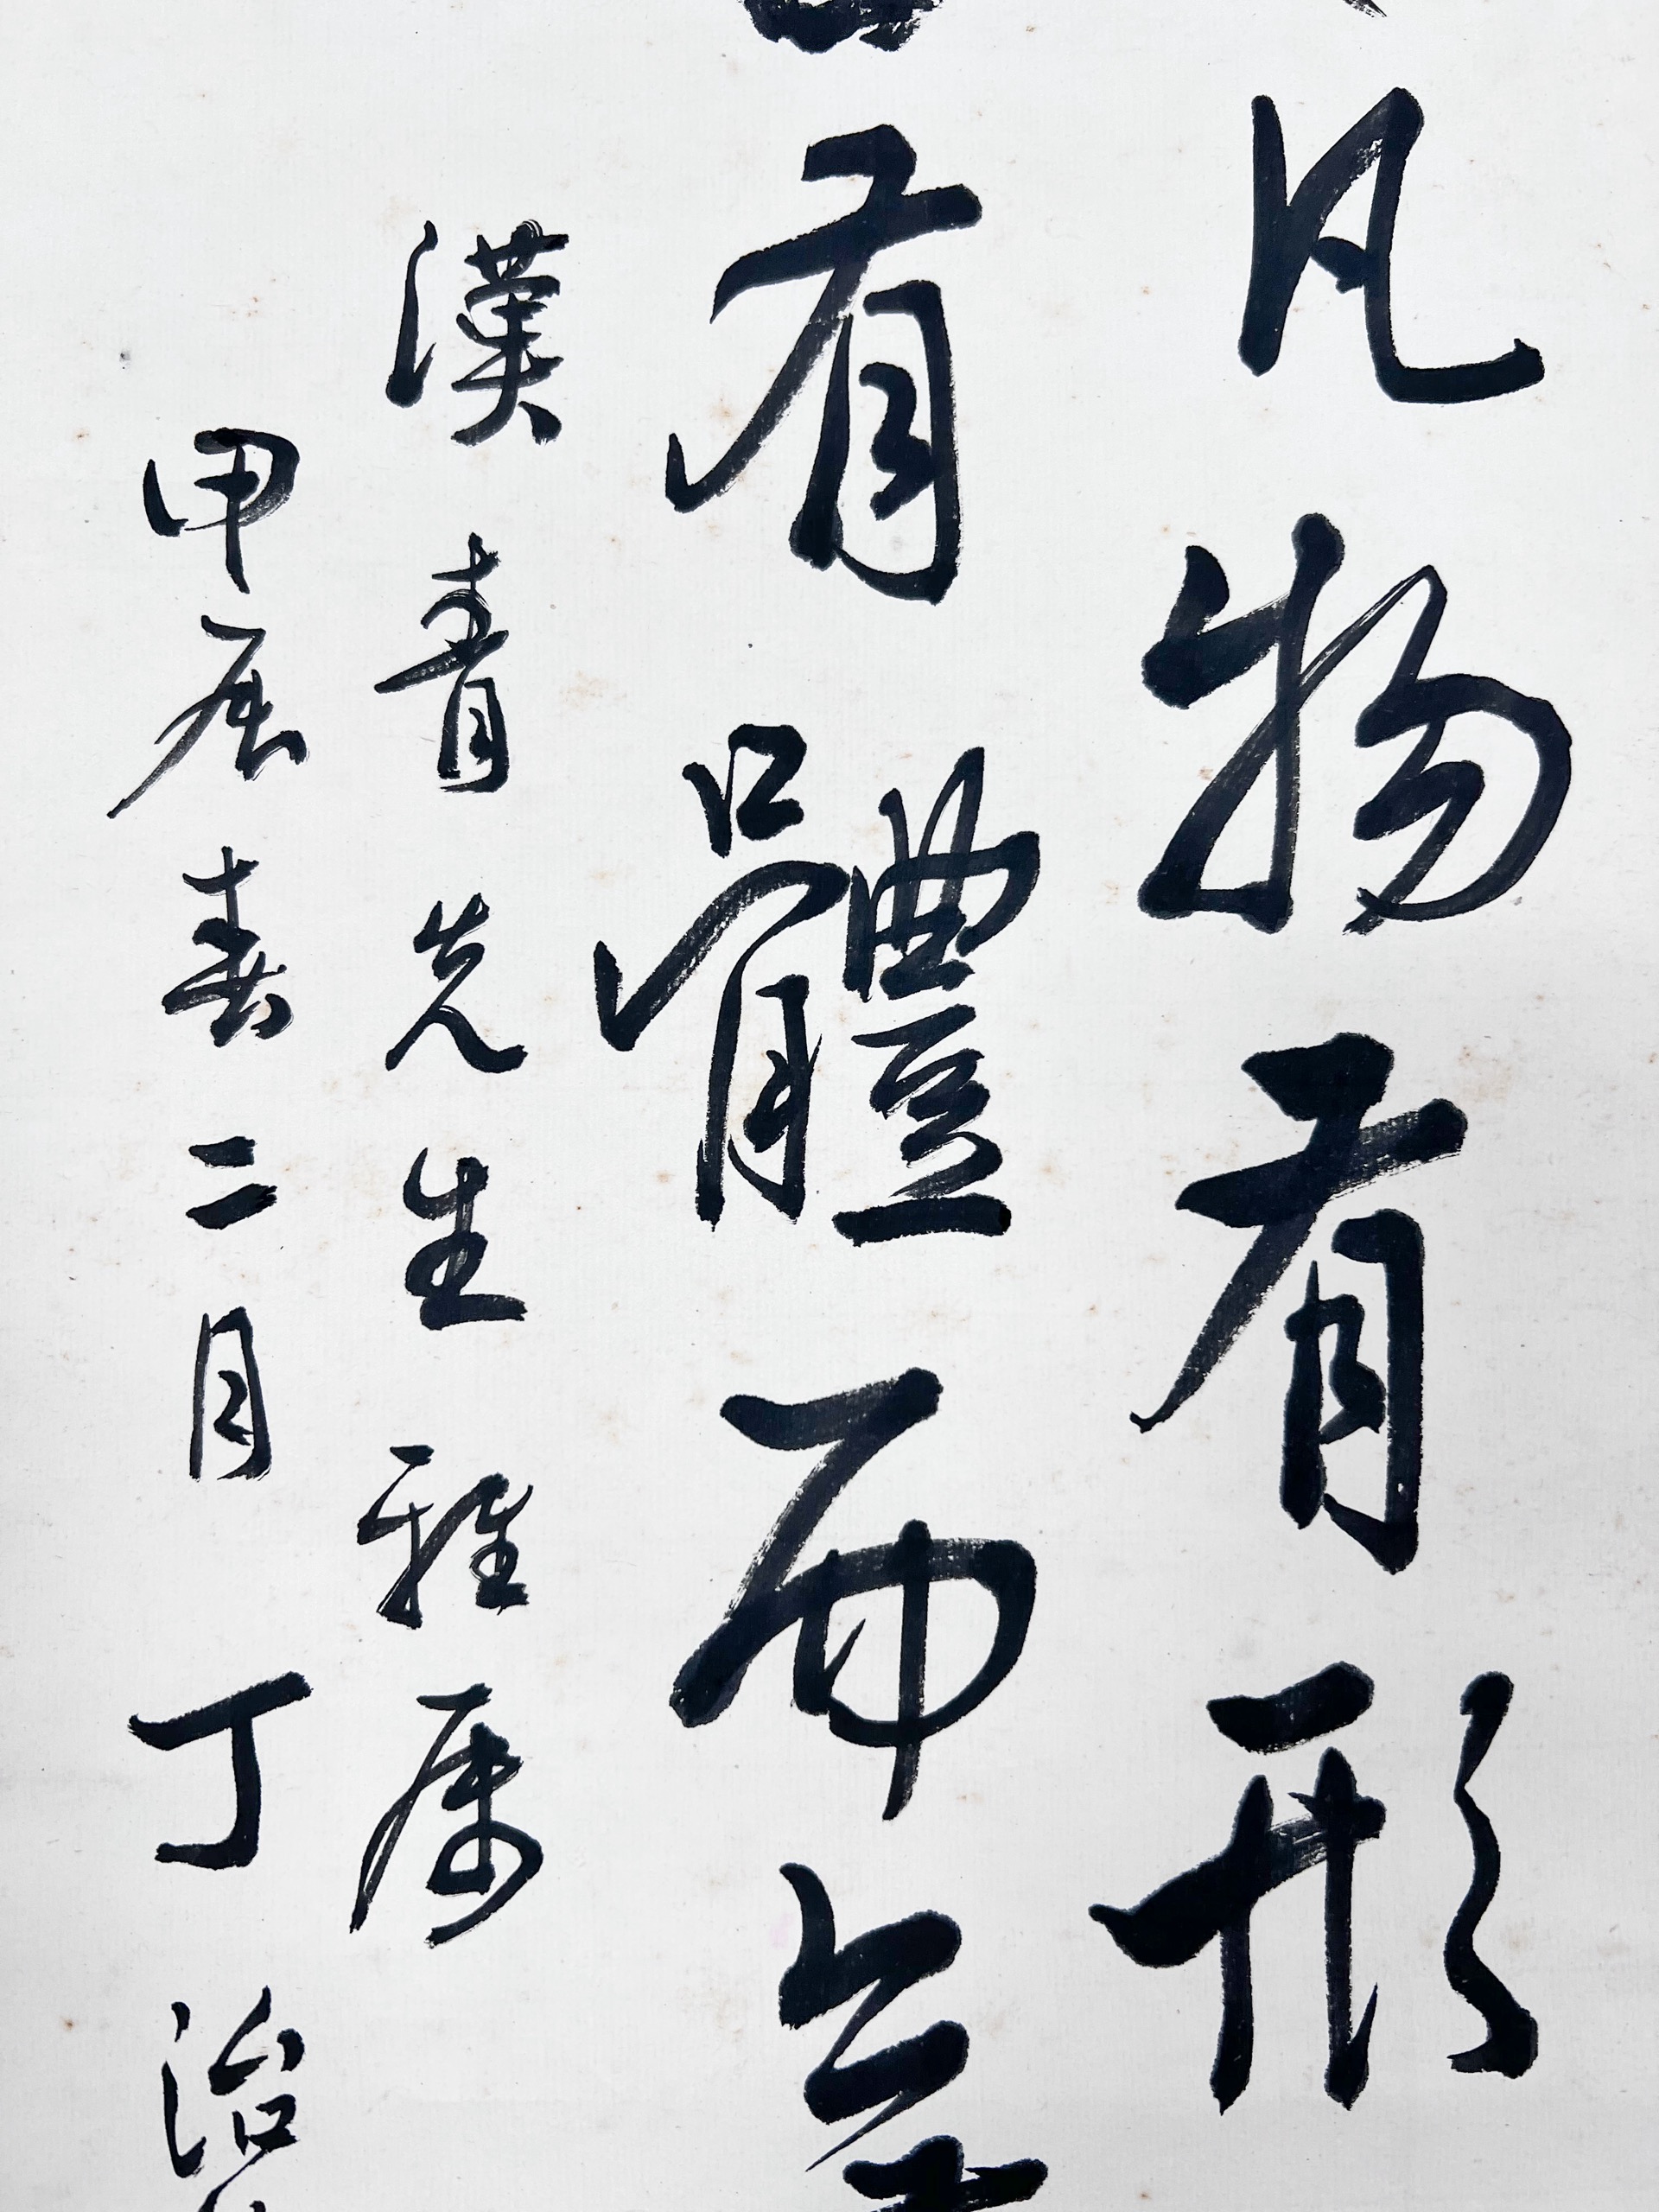 凡物有形
有體而
漢青先生雅属
甲辰春二月丁治